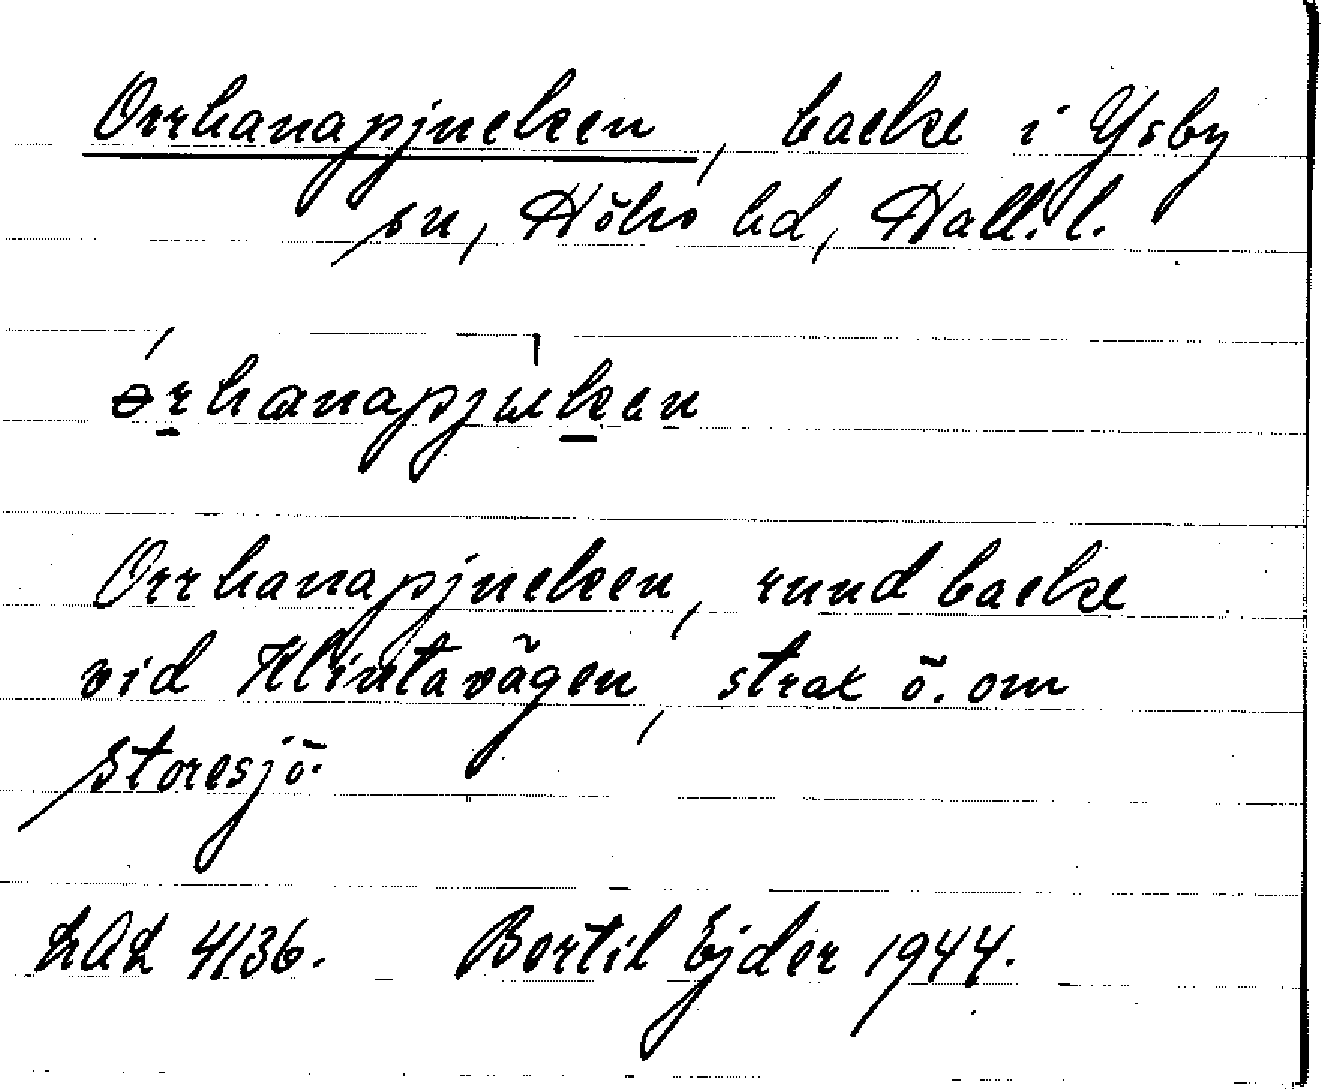 Orrhanapjucken, backe i Ysby
sn, Höks hd, Hall. l.
Orrhanapjucken, rund backe
vid Klintavägen, strax ö. om
Storesjö.
LAL 4136. Bertil Ejder 1944.